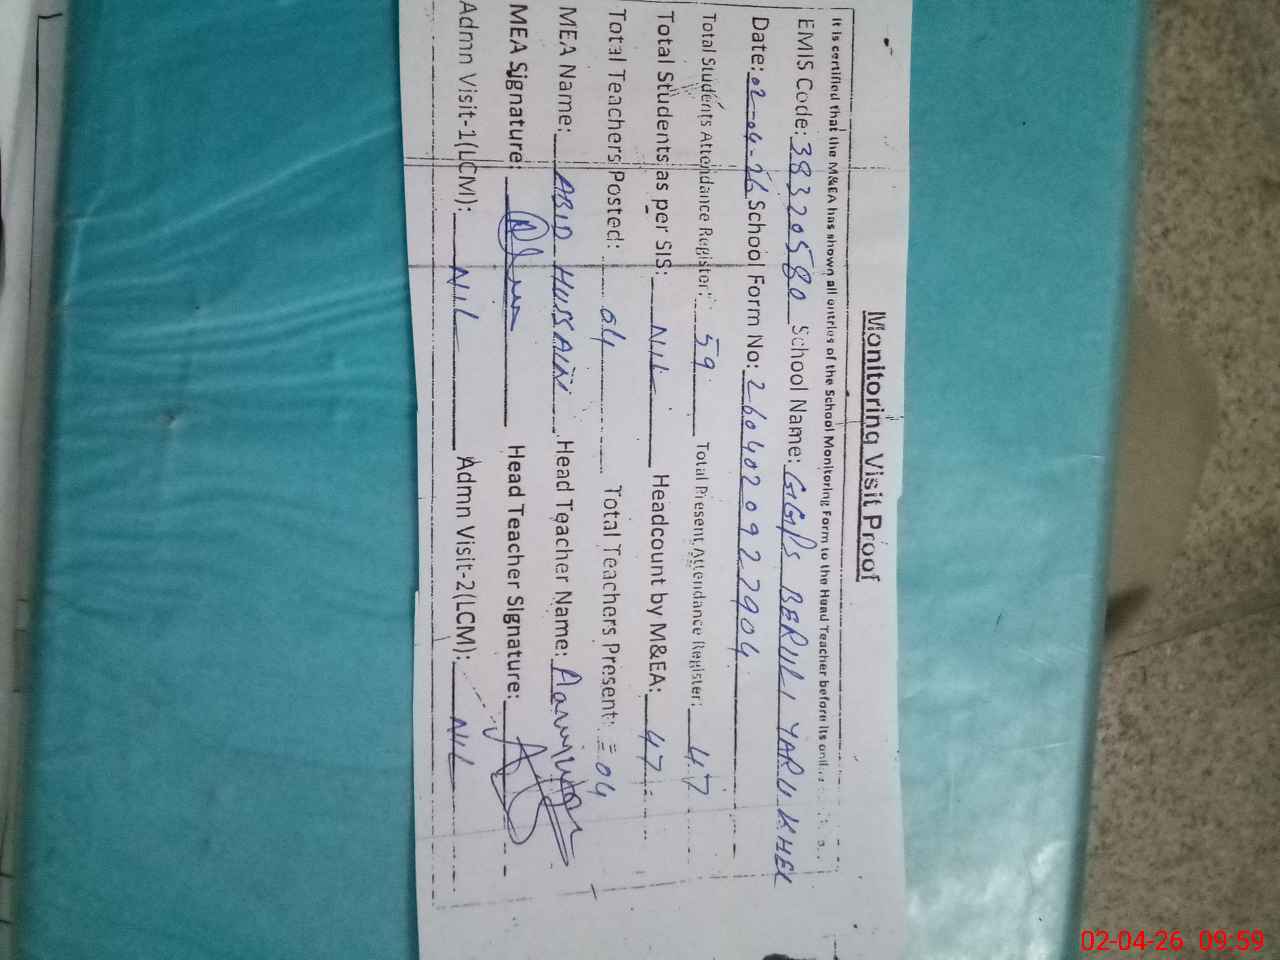 Monitoring Visit Proof
It is certified that the M&EA has shown all entries of the School Monitoring Form to the Head Teacher before its
EMIS Code: 38320580 School Name: GGPS BERULI YARU KHEL
Date: 02-04-26 School Form No: 2604020922904
Total Students Attendance Register: 59 Total Present Attendance Register: 47
Total Students as per SIS: NIL Headcount by M&EA: 47
Total Teachers Posted: 04 Total Teachers Present: 04
MEA Name: ABID HUSSAIN Head Teacher Name:
MEA Signature: Head Teacher Signature:
Admn Visit-1(LCM): NIL Admn Visit-2(LCM): NIL
02-04-26 09:59